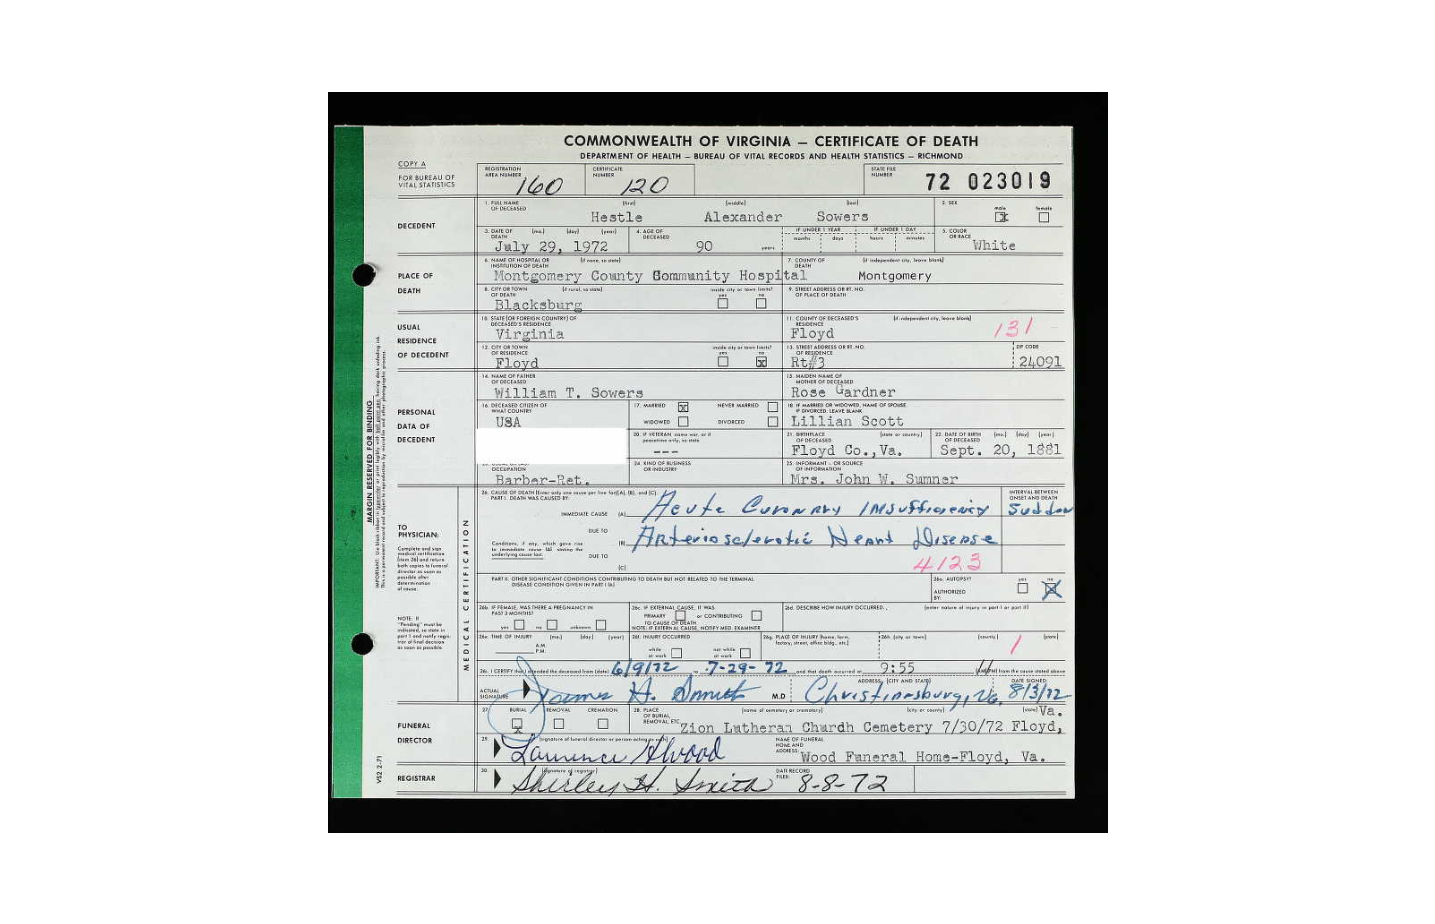 COMMONWEALTH OF VIRGINIA — CERTIFICATE OF DEATH
DEPARTMENT OF HEALTH — BUREAU OF VITAL RECORDS AND HEALTH STATISTICS — RICHMOND
COPY A
FOR BUREAU OF VITAL STATISTICS
REGISTRATION AREA NUMBER 160
CERTIFICATE NUMBER 120
STATE FILE NUMBER 72 023019
DECEDENT
1. FULL NAME OF DECEASED (first) (middle) (last)
Hestle Alexander Sowers
2. SEX male female
3. DATE OF DEATH (mo.) (day) (year)
July 29, 1972
4. AGE OF DECEASED
90 years
IF UNDER 1 YEAR months days
IF UNDER 1 DAY hours minutes
5. COLOR OR RACE
White
PLACE OF DEATH
6. NAME OF HOSPITAL OR INSTITUTION OF DEATH (if none, so state)
Montgomery County Community Hospital
7. COUNTY OF DEATH (if independent city, leave blank)
Montgomery
8. CITY OR TOWN OF DEATH (if rural, so state)
Blacksburg
inside city or town limits? yes no
9. STREET ADDRESS OR RT. NO. OF PLACE OF DEATH
USUAL RESIDENCE OF DECEDENT
10. STATE (OR FOREIGN COUNTRY) OF DECEASED'S RESIDENCE
Virginia
11. COUNTY OF DECEASED'S RESIDENCE (if independent city, leave blank)
Floyd
131
12. CITY OR TOWN OF RESIDENCE
Floyd
inside city or town limits? yes no
13. STREET ADDRESS OR RT. NO. OF RESIDENCE
Rt#3
ZIP CODE
24091
PERSONAL DATA OF DECEDENT
14. NAME OF FATHER OF DECEASED
William T. Sowers
15. MAIDEN NAME OF MOTHER OF DECEASED
Rose Gardner
16. DECEASED CITIZEN OF WHAT COUNTRY
USA
17. MARRIED NEVER MARRIED
WIDOWED DIVORCED
18. IF MARRIED OR WIDOWED, NAME OF SPOUSE. IF DIVORCED, LEAVE BLANK
Lillian Scott
20. IF VETERAN, name war, or if peacetime only, so state
---
21. BIRTHPLACE OF DECEASED (state or country)
Floyd Co.,Va.
22. DATE OF BIRTH OF DECEASED (mo.) (day) (year)
Sept. 20, 1881
OCCUPATION
Barber-Ret.
24. KIND OF BUSINESS OR INDUSTRY
25. INFORMANT - OR SOURCE OF INFORMATION
Mrs. John W. Sumner
MARGIN RESERVED FOR BINDING
MEDICAL CERTIFICATION
TO PHYSICIAN:
Complete and sign medical certification (item 26) and return both copies to funeral director as soon as possible after determination of cause.
NOTE: If "Pending" must be indicated, so state in part I and notify registrar of final decision as soon as possible.
26. CAUSE OF DEATH (Enter only one cause per line for (A), (B), and (C).)
PART I. DEATH WAS CAUSED BY:
INTERVAL BETWEEN ONSET AND DEATH
IMMEDIATE CAUSE (A) Acute Coronary Insufficiency Sudden
DUE TO
Conditions, if any, which gave rise to immediate cause (A) stating the underlying cause last.
(B) Arteriosclerotic Heart Disease
DUE TO
(C)
4123
PART II. OTHER SIGNIFICANT CONDITIONS CONTRIBUTING TO DEATH BUT NOT RELATED TO THE TERMINAL DISEASE CONDITION GIVEN IN PART I (A)
26a. AUTOPSY? yes no
AUTHORIZED BY:
26b. IF FEMALE, WAS THERE A PREGNANCY IN PAST 3 MONTHS?
yes no unknown
26c. IF EXTERNAL CAUSE, IT WAS
PRIMARY or CONTRIBUTING
TO CAUSE OF DEATH
NOTE: IF EXTERNAL CAUSE, NOTIFY MED. EXAMINER
26d. DESCRIBE HOW INJURY OCCURRED. (enter nature of injury in part I or part II)
26e. TIME OF INJURY (mo.) (day) (year)
A.M.
P.M.
26f. INJURY OCCURRED
while at work not while at work
26g. PLACE OF INJURY (home, farm, factory, street, office bldg., etc.)
26h. (city or town) (county) (state)
1
26i. I CERTIFY that I attended the deceased from (date) 6/9/72 to 7-29-72 and that death occurred at 9:55 from the cause stated above
ACTUAL SIGNATURE James H. Smith M.D.
ADDRESS, (CITY AND STATE)
Christiansburg, Va.
DATE SIGNED
8/3/72
FUNERAL DIRECTOR
27. BURIAL REMOVAL CREMATION
28. PLACE OF BURIAL, REMOVAL, ETC. (name of cemetery or crematory) (city or county) (state)
Va.
Zion Lutheran Church Cemetery 7/30/72 Floyd,
29. (signature of funeral director or person acting as such)
NAME OF FUNERAL HOME AND ADDRESS:
Wood Funeral Home-Floyd, Va.
REGISTRAR
30. (signature of registrar)
Shirley H. Smith
DATE RECORD FILED:
8-8-72
VS2 2-71